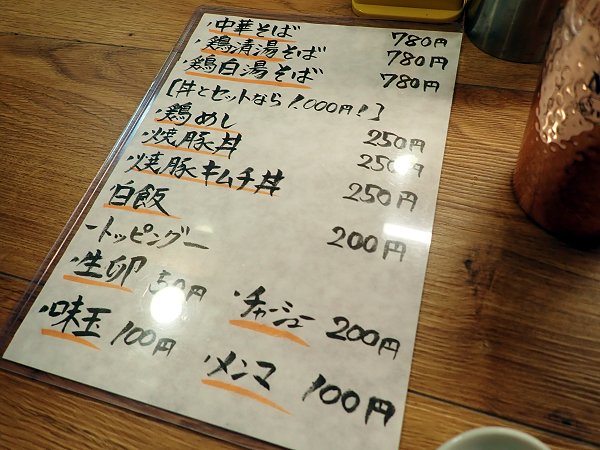 ・中華そば 780円
・鶏清湯そば 780円
・鶏白湯そば 780円
[丼とセットなら1,000円!]
・鶏めし 250円
・焼豚丼 250円
・焼豚キムチ丼 250円
・白飯 200円
ートッピングー
・生卵 50円
・チャーシュー 200円
・味玉 100円
・メンマ 100円